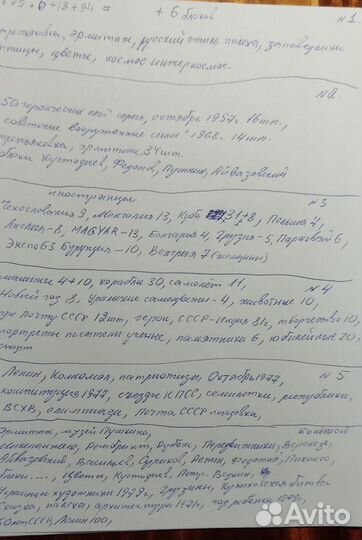 +5+0+18+94 = + 6 блоков
N 1
третьяковка, эрмитаж, русский стиль палеха, заповедники
птицы, цветы, космос интеркосмос.
N 2.
50 героических лет" серия, октябрь 1957г. 16шт.,
советские вооруженные силы" 1968г. 14шт.
третьяковка, эрмитаж, 34шт.
блоки Кустодиев, Федотов, Пушкин, Айвазовский
иностранцы N 3
Чехословакия 9, Монголия 13, Куба 31+8, Польша 7,
8, MAGYAR-13, Болгария 4, Грузия-5, Парагвай 6,
Экспо 63 Бурунди-10, Венгрия 7 (женщины)
N 4
машины 4+10, корабли 30, самолёт 11,
Новый год 8, Уральские самоцветы-4, животные 10,
почту СССР 12шт, герои, СССР-Индия 81г., творчество 10,
портреты писатели ученые, памятники 6, юбилейные 20,
спорт
N 5
Ленин, Комсомол, патриотизм, Октябрь 1977,
конституция 1977, съезды КПСС, семилетки, республики,
ВСХВ, олимпиада, Почта СССР
Большой
Эрмитаж, музей Пушкина,
Микеланжело, Рембрандт, Рубенс, Передвижники, Веронезе
Айвазовский, Васильев, Суриков, Репин, Федотов, Пикассо,
блоки ..., Цветы, Кустодиев, Петр. Водкин,
Украинские художники 1979г., Грузины, Куликовская битва
Сказки, палеха, архитектура 1971г, год ребёнка 1979г,
50 лет СССР, Ленин 100,
Avito